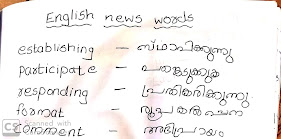 English news words
establishing - സ്ഥാപിക്കുന്നു
participate - പങ്കെടുക്കുക
responding - പ്രതികരിക്കുന്നു
format - രൂപ രചന
comment - അഭിപ്രായം
CS Scanned with